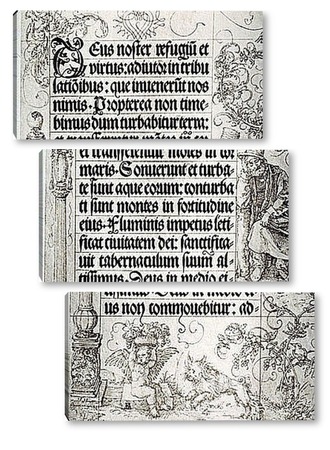 DEus noster refugiũ et
virtus: adiutor in tribu
latiõibus: que inuenerũt nos
nimis. Propterea non time
bimus dum turbabitur terra:
et transferentur mõtes in cor
maris. Sonuerunt et turba-
te sunt aque eorum: conturba
ti sunt montes in fortitudine
eius. Fluminis impetus leti
ficat ciuitatem dei: sanctifica-
uit tabernaculum suum al-
tissimus. Deus in medio e-
us non commouebitur: ad-